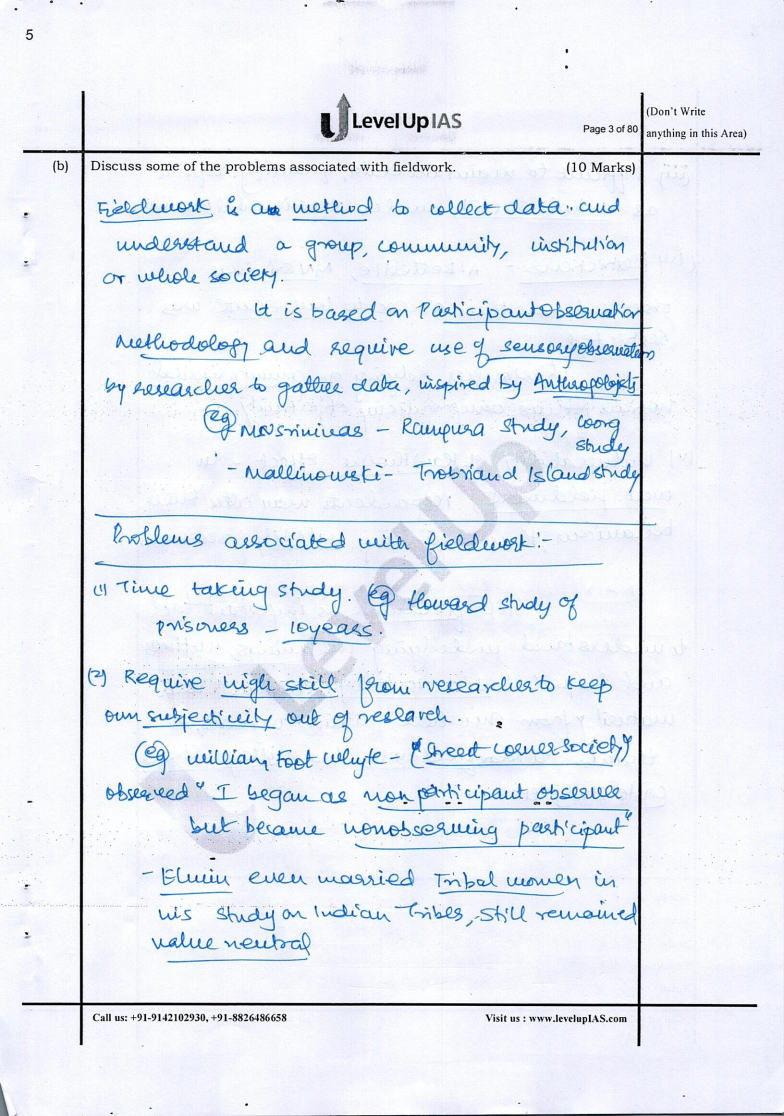 5
LevelUp IAS
Page 3 of 80
(Don't Write
anything in this Area)
(b) Discuss some of the problems associated with fieldwork. (10 Marks)
Fieldwork is a method to collect data and
understand a group, community, institution
or whole society.
It is based on Participant Observation
Methodology and require use of sensory observation
by researcher to gather data, inspired by Anthropologists
eg MN Srinivas - Rampura study, Coorg
study
- Mallinowski - Trobriand Island study
Problems associated with fieldwork:-
(1) Time taking study. eg Howard study of
prisoners - 10 years.
(2) Require high skill from researcher to keep
own subjectivity out of research.
eg William Foot Whyte - "Street corner society"
observed "I began as non participant observer
but became nonobserving participant"
- Elwin even married Tribal women in
his study on Indian Tribes, still remained
value neutral
LevelUp
Call us: +91-9142102930, +91-8826486658
Visit us : www.levelupIAS.com